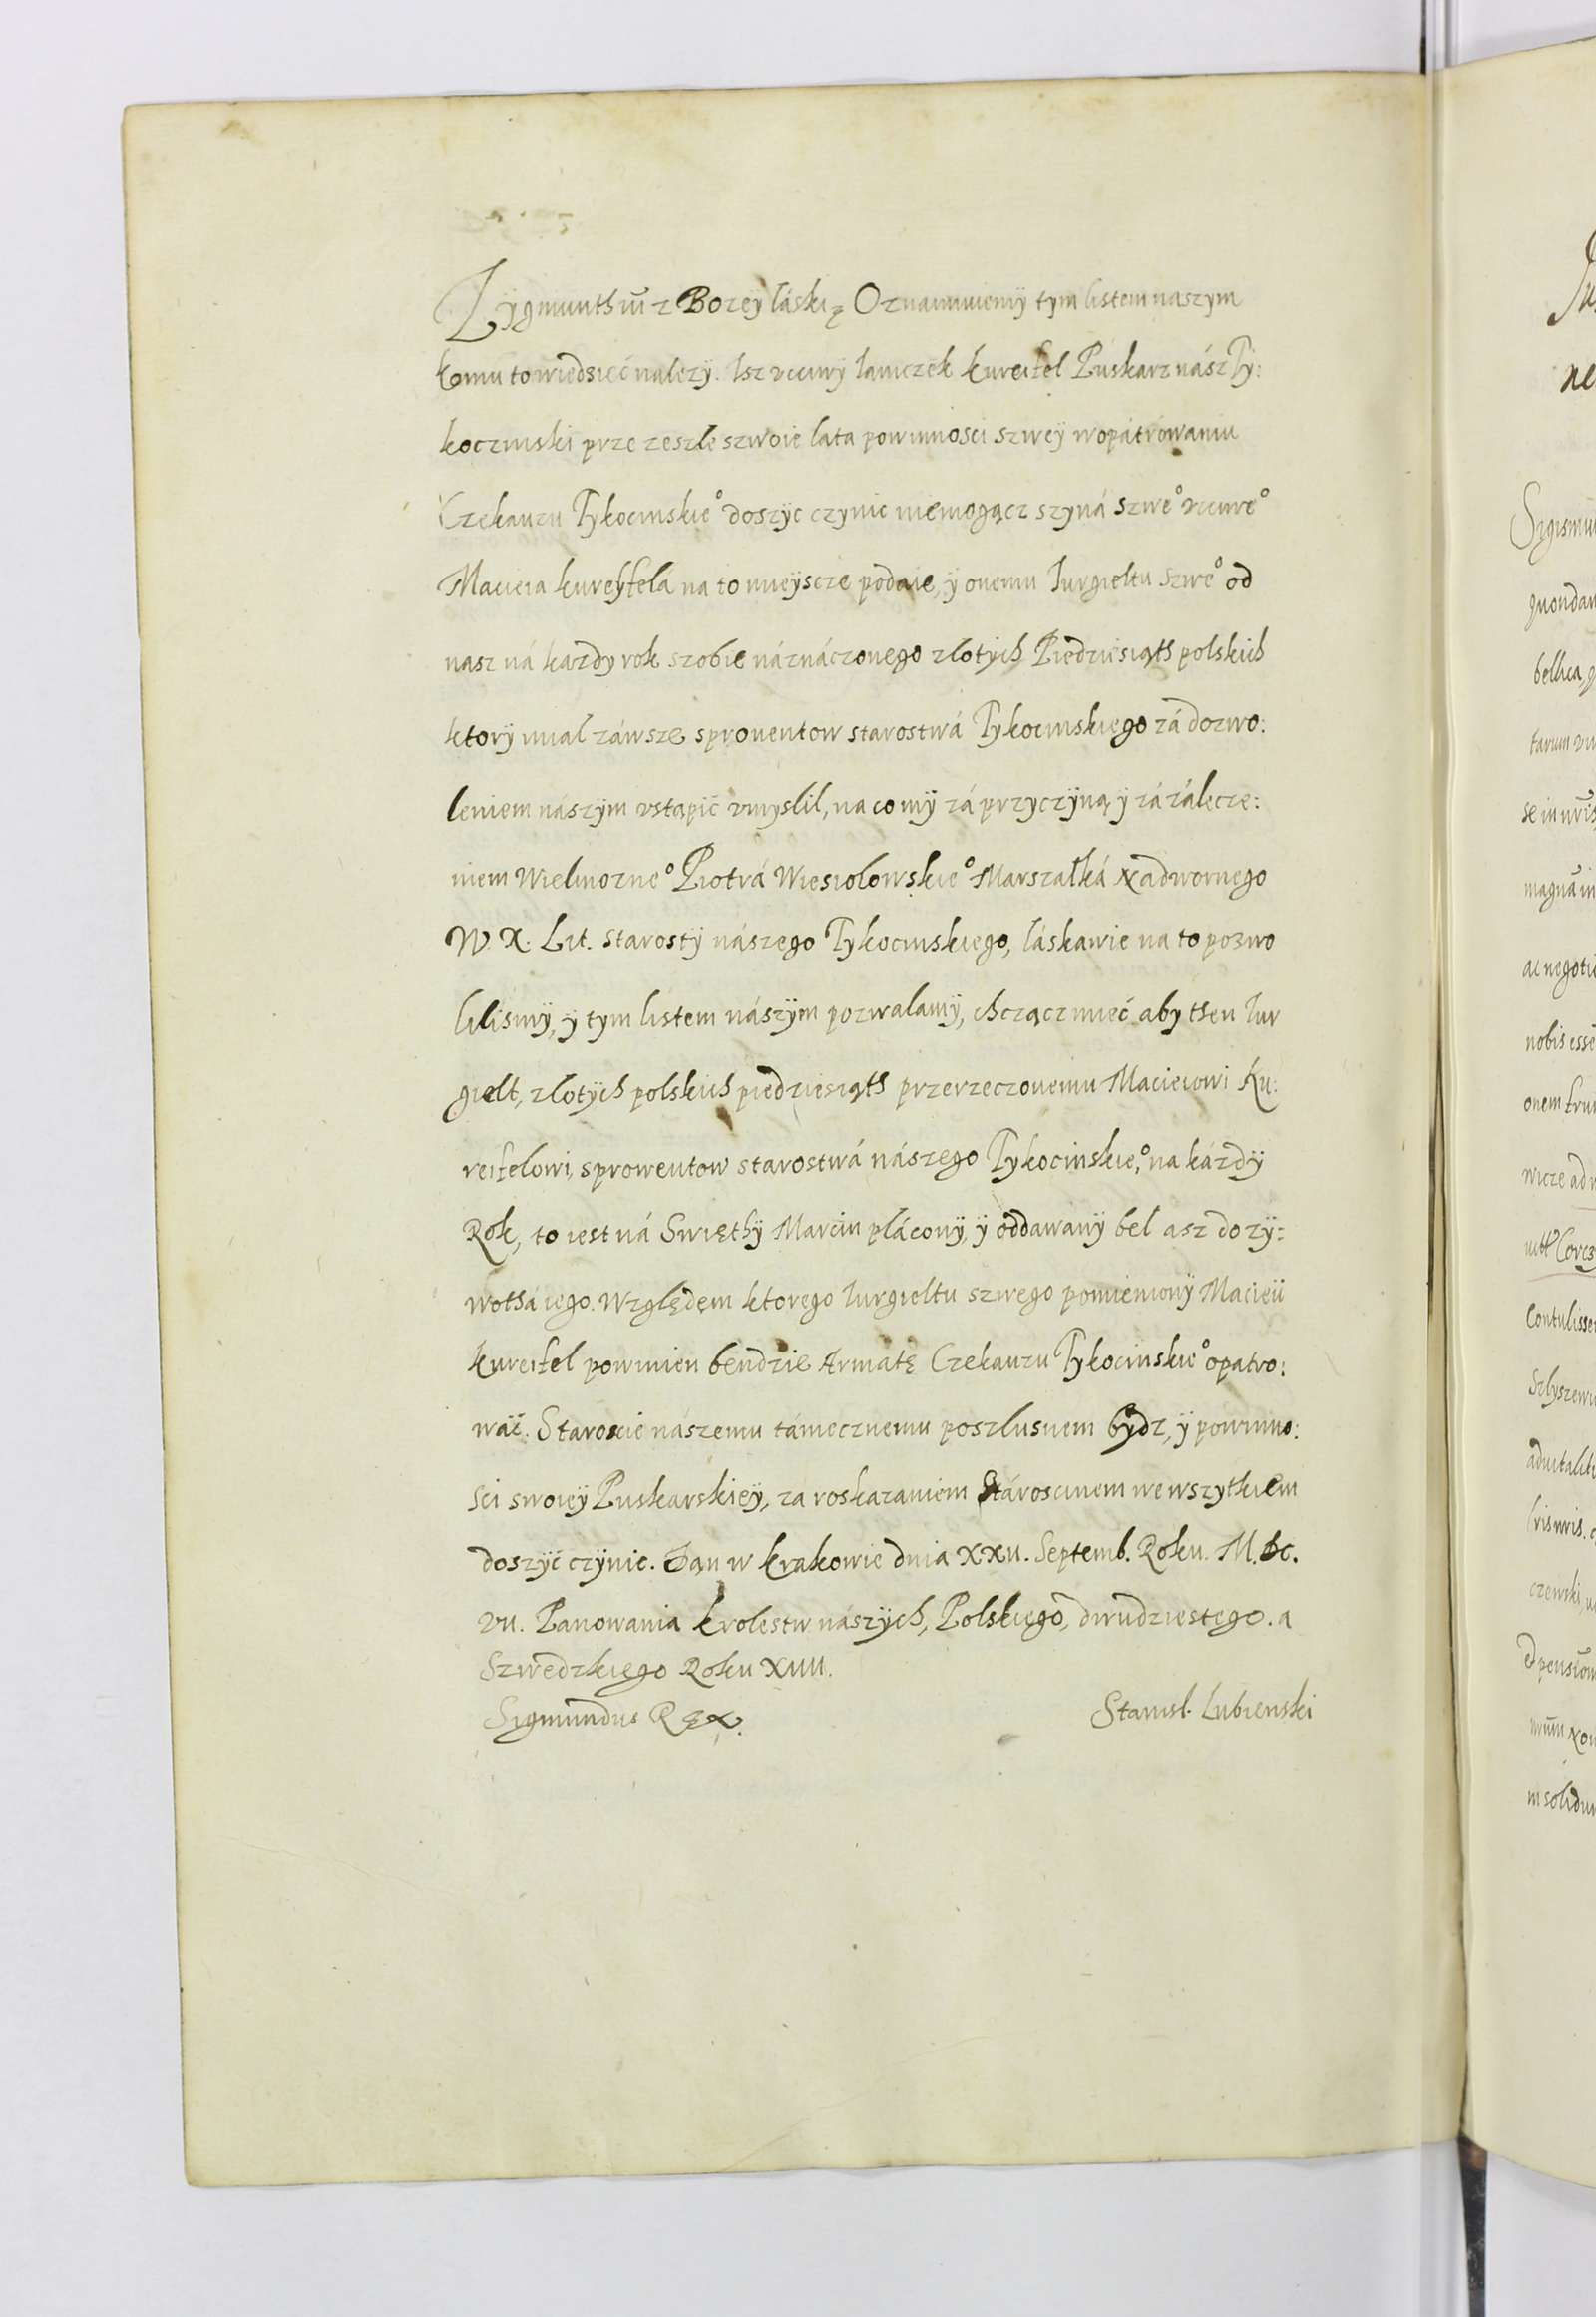 Zÿgmunth III z Bozeÿ láski Oznaimuiemÿ tym listem naszym
komu to wiedsieć nalezÿ. Isz vcciwÿ Janiczek kureifel Puskarz nász Tÿ:
koczinski prze zeszłe szwoie lata powinnosci szweÿ w opátrowaniu
Czekauzu Tykocinskie° doszÿc czynic niemogącz szyná szwe° vcciwe°
Macieia kureÿfela na to mieÿscze podaie, ÿ onemu Jurgieltu szwe° od
nasz ná kazdy rok szobie náznáczonego złotÿch Piedziesiąth polskich
ktorÿ miał záwsze sprouentow starostwá Tykocinskiego zá dozwo:
leniem nászÿm vstąpić vmyslil, na co mÿ zá przyczÿną ÿ zá zálecze:
niem Wielmozne° Piotrá Wiesiolowskie° Marszałká Nadwornego
W. X. Lit. Starostÿ nászego Tykocinskiego, láskawie na to pozwo
lilismÿ, ÿ tym listem nászÿm pozwalamÿ, chcząc miec aby then Jur
gielt, zlotÿch polskich piedziesiąth przerzeczonemu Macieiowi Ku:
reifelowi, sprowentow starostwá nászego Tykocinskie,° na kázdÿ
Rok, to iest ná Swięthÿ Marcin plácony, ÿ oddawanÿ bel asz do zÿ:
wothá iego. Względem ktorego Jurgieltu szwego pomienionÿ Macieii
kureifel powinien bendzie Armatę Czekauzu Tykocinskie° opatro:
wáć. Staroscie nászemu támecznemu poszlusnem bÿdz, ÿ powinno:
sci swoieÿ Puskarskieÿ, za roskazaniem Stároscinem we wszytkiem
doszÿć czÿnic. Dan w krakowie dnia XXII. Septemb. Roku. M. DC.
VII. Panowania krolestw nászÿch, Polskiego, dwudziestego. a
Szwedzkiego Roku XIIII.
Sigmundus Rex.
Stanisl. Lubienski